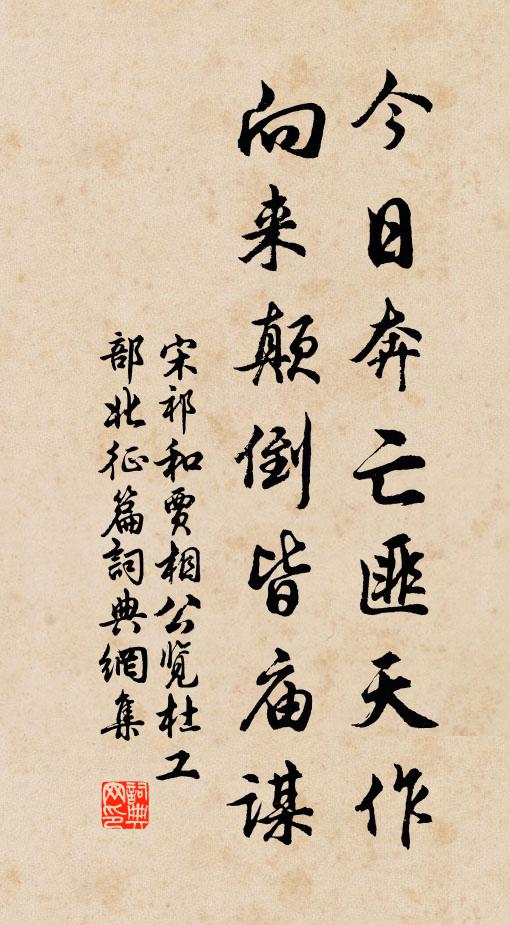 今日奔亡匪天作
向来颠倒皆庙谋
宋祁和賈相公览杜工
部北征篇詞典網集
詞典网印